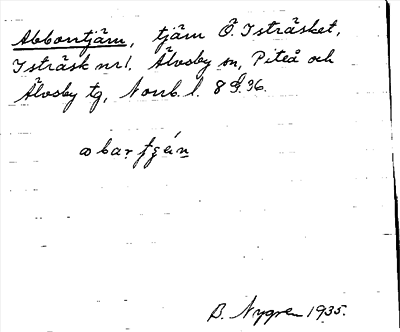 Abborrtjärn, tjärn Ö. Isträsket,
Isträsk nr 1. Älvsby sn, Piteå och
Älvsby tg, Norrb. l. 8 96.
B. Nygren 1935.